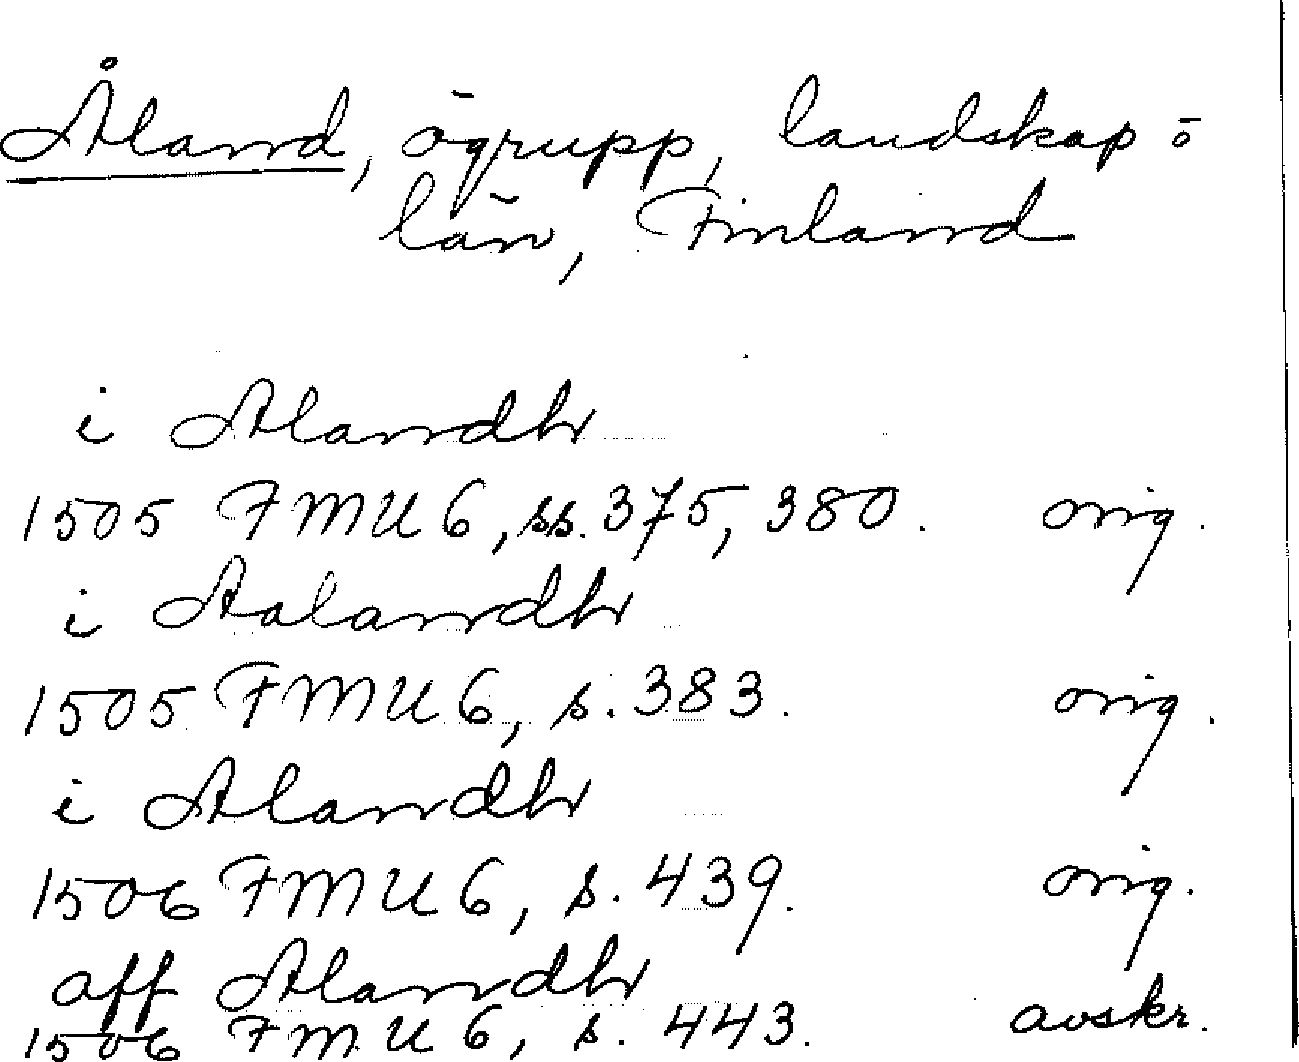 Åland, ögrupp, landskap o
län, Finland
i Alandh
1505 FMU 6, ss. 375, 380. orig.
i Aalandh
1505 FMU 6, s. 383. orig.
i Alandh
1506 FMU 6, s. 439. orig.
aff Alandh
1506 FMU 6, s. 443. avskr.